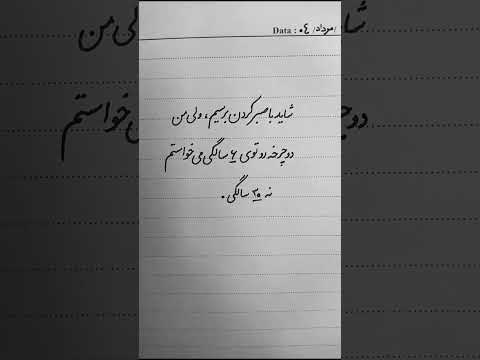 Data : ۰۴ /مرداد/
شاید با صبر کردن برسیم، ولی من
دوچرخه رو توی ۶ سالگی می‌خواستم
نه ۳۵ سالگی.